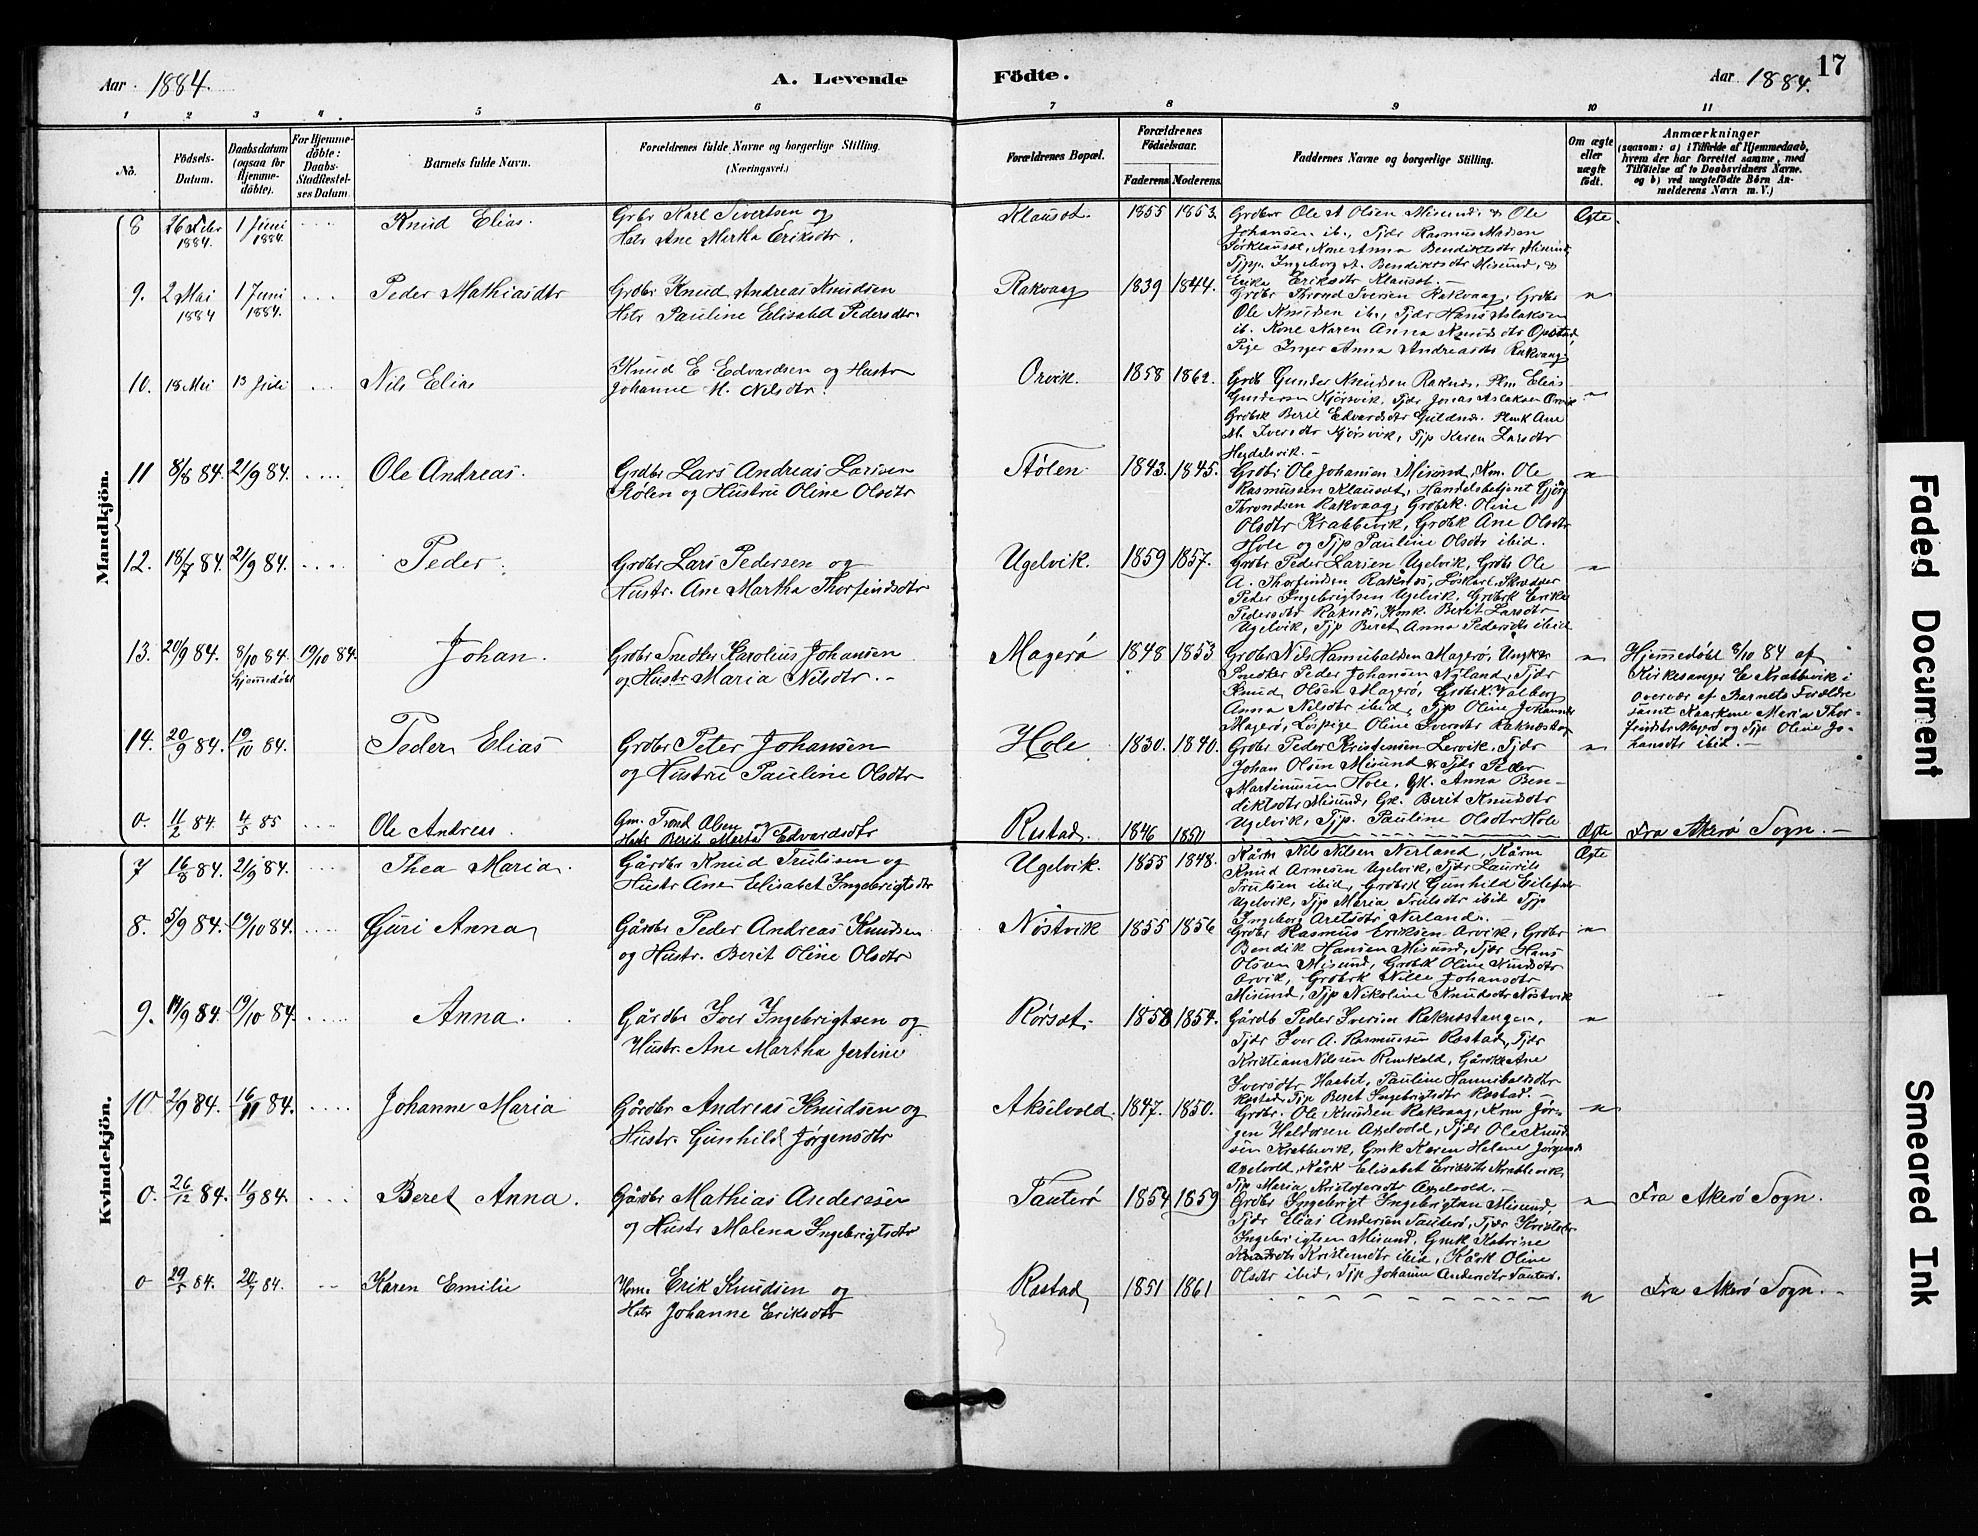 Aar 1884. A. Levende Födte. Aar 1884. 17
1 2 3 4 5 6 7 8 9 10 11
No. Födsels-Datum. Daabsdatum (ogsaa for Hjemmedöbte). For Hjemmedöbte: Daabs-Stadfestelses Datum. Barnets fulde Navn. Forældrenes fulde Navne og borgerlige Stilling. (Næringsvei.) Forældrenes Bopæl. Forældrenes Födselsaar. Faderens Moderens Faddernes Navne og borgerlige Stilling. Om ægte eller uægte födt. Anmærkninger (saasom: a) i Tilfælde af Hjemmedaab, hvem der har forrettet samme, med Tilföielse af to Daabsvidners Navne. og b) ved uægtefödte Börn Anmelderens Navn m. V.)
Mandkjön.
8 26 Febr 1884. 1 Juni 1884. Knud Elias. Grbr Karl Sivertsen og
Hstr Ane Martha Eriksdtr. Klauset. 1855 1853. Ægte.
Grdbr Ole A Olsen Misund, & Ole
Johansen ib., Tjdr Rasmus Madsen
Sørklauset, Kone Anna Bendiktsdtr Misund
Tjpp. Ingeborg A. Bendiktsdtr Misund, &
Erika Eriksdtr Klauset.
9. 2 Mai 1884 1 Juni 1884. Peder Mathiasdtr Grdbr Knud Andreas Knudsen
Hstr Pauline Elisabet Pedersdtr. Rakvaag 1839 1844. "
Grdbr Thrond Iversen Rakvaag, Grdbr
Ole Knudsen ib., Tjdr Hans Aslaksen
ib. Kone Karen Anna Knudsdtr Opstad
Pige Inger Anna Andreasdtr Rakvaag
10. 18 Mai 13 Juli Nils Elias Knud E. Edvardsen og Hustr
Johanne M. Nilsdtr. Orvik. 1858 1862. "
Grdb Gunder Knudsen Raknes, Plm Elias
Gundersen Kjørsvik, Tjdr Jonas Aslaksen Orvik
Grdbrk Berit Edvardsdtr Guldnes. Plmk Ane
M. Iversdtr Kjørsvik, Tjp Karen Larsdtr
11 8/8 84. 21/9 84. Ole Andreas. Grdbr Lars Andreas Larsen
Stølen og Hustru Oline Olsdtr Stølen. 1843. 1845. "
Grdbr Ole Johansen Misund, Km. Ole
Rasmussen Klauset, Handelsbetjent Gjørg
Throndsen Rakvaag, Grdbrk. Oline
Olsdtr Krabbevik, Grdbk Ane Olsdtr
Hole og Tjp Pauline Olsdtr ibid.
12. 18/7 84. 21/9 84. Peder. Grdbr Lars Pedersen og
Hustr. Ane Martha Thorfindsdtr Ugelvik. 1859 1857. "
Grdbr Peder Larsen Ugelvik, Grdbr Ole
A. Thorfindsen Raknes, Løskarl Skrædder
Peder Ingebrigtsen Ugelvik, Grdbrk Erika
Pedersdtr Raknes, Kmk. Berit Larsdtr
Ugelvik, Tjp Beret Anna Pedersdtr ibid
13. 20/9 84. 8/10 84. hjemmedøbt 19/10 84. Johan. Grdbr Snedker Karolius Johansen
og Hustr Maria Nilsdtr. Magerø 1848 1853 "
Grdbr Nils Hannibalsen Magerø, Ungkar
Snedker Peder Johansen Nyland, Tjdr
Knud Olsen Magerø, Grdbrk. Valborg
Anna Nilsdtr ibid, Tjp Oline Johansdtr
Magerø, Løspige Oline Iversdtr Raknestang
Hjemmedøbt 8/10 84 af
Kirkesanger E. Krabbevik i
overvær af Barnets Forældre
samt Kaarkone Maria Thor-
findsdtr Magerø og Tjp Oline Jo-
hansdtr ibid.
14. 20/9 84. 19/10 84. Peder Elias Grdbr Peter Johansen
og Hustru Pauline Olsdtr Hole 1830. 1840. "
Grdbr Peder Kristensen Lervik, Tjdr
Johan Olsen Misund & Tjdr Peder
Martinussen Hole, Gk. Anna Ben-
diktsdtr Misund, Gk. Berit Knudsdtr
Ugelvik, Tjp. Pauline Olsdtr Hole
0. 11/2 84. 4/5 85 Ole Andreas. Gm. Trond Olsen og
Hstr Berit Marta Edvardsdtr Restad. 1846 1850 Ægte Fra Akerø Sogn.
Kvindekjön.
7 16/8 84. 21/9 84. Thea Maria. Gårdbr Knud Trulssen og
Hustr Ane Elisabet Ingebrigtsdtr Ugelvik. 1855 1848. Ægte
Kårm Nils Nilsen Nerland, Kårm
Knud Arnesen Ugelvik, Tjdr Laurits
Trulsen ibid, Grdbrk Gunhild
Ugelvik, Tjp Maria Trulsdtr ibid Tjp
Ingeborg Nerland.
8. 5/9 84. 19/10 84. Guri Anna Gårdbr Peder Andreas Knudsen
og Hustr. Berit Oline Olsdtr Nøstvik 1855 1856 "
Grdbr Rasmus Eriksen Arvik, Grdbr
Bendik Hansen Misund, Tjdr Hans
Olsen Misund, Grdbrk Oline Knudsdtr
Arvik, Grdbrk Nille Johansdtr
Misund, Tjp Nikoline Knudsdtr Nøstvik
9. 14/9 84. 19/10 84. Anna. Gårdbr Iver Ingebrigtsen og
Hustr. Ane Martha Jertine Rørset. 1858 1854. "
Gårdb Peder Iversen Raknestangen,
Tjdr Iver A. Rasmussen Rostad, Tjdr
Kristian Nilsen Renkold, Gårdk Ane
Iversdtr Haabet, Pauline Hannibalsdtr
Rostad, Tjp Beret Ingebrigtsdtr Rostad.
10 2/9 84. 16/11 84. Johanne Maria Gårdbr Andreas Knudsen og
Hustr. Gunhild Jørgensdtr Akselvold. 1847. 1850. "
Grdbr. Ole Knudsen Rakvaag, Krm Jør-
gen Heldorsen Axelvold, Tjdr Ole Knud
sen Krabbevik, Gmk Karen Helene Jørgensd
Axelvold, Kårk Elisabet Eriksdtr Krabbevik,
Tjp Maria Kristofersdtr Axelvold.
0. 26/12 84. 11/9 84. Beret Anna. Gårdbr Mathias Anderssen
og Hustr Malena Ingebrigtsdtr Tauterø 1854 1859 " Fra Akerø Sogn.
Grdbr Ingebrigt Ingebrigtsen Misund,
Tjdr Elias Andersen Tauterø, Tjdr Kristofer
Ingebrigtsen Misund, Gmk Katrine
Kristensdtr ibid, Kårk Oline
Olsdtr ibid, Tjp Johanne Andersdtr Tauterø.
0 29/5 84. 20/7 84. Karen Emilie Hm. Erik Knudsen og
Hstr Johanne Eriksdtr Rostad 1851 1861 " Fra Akerø Sogn.
Faded Document
Smeared Ink